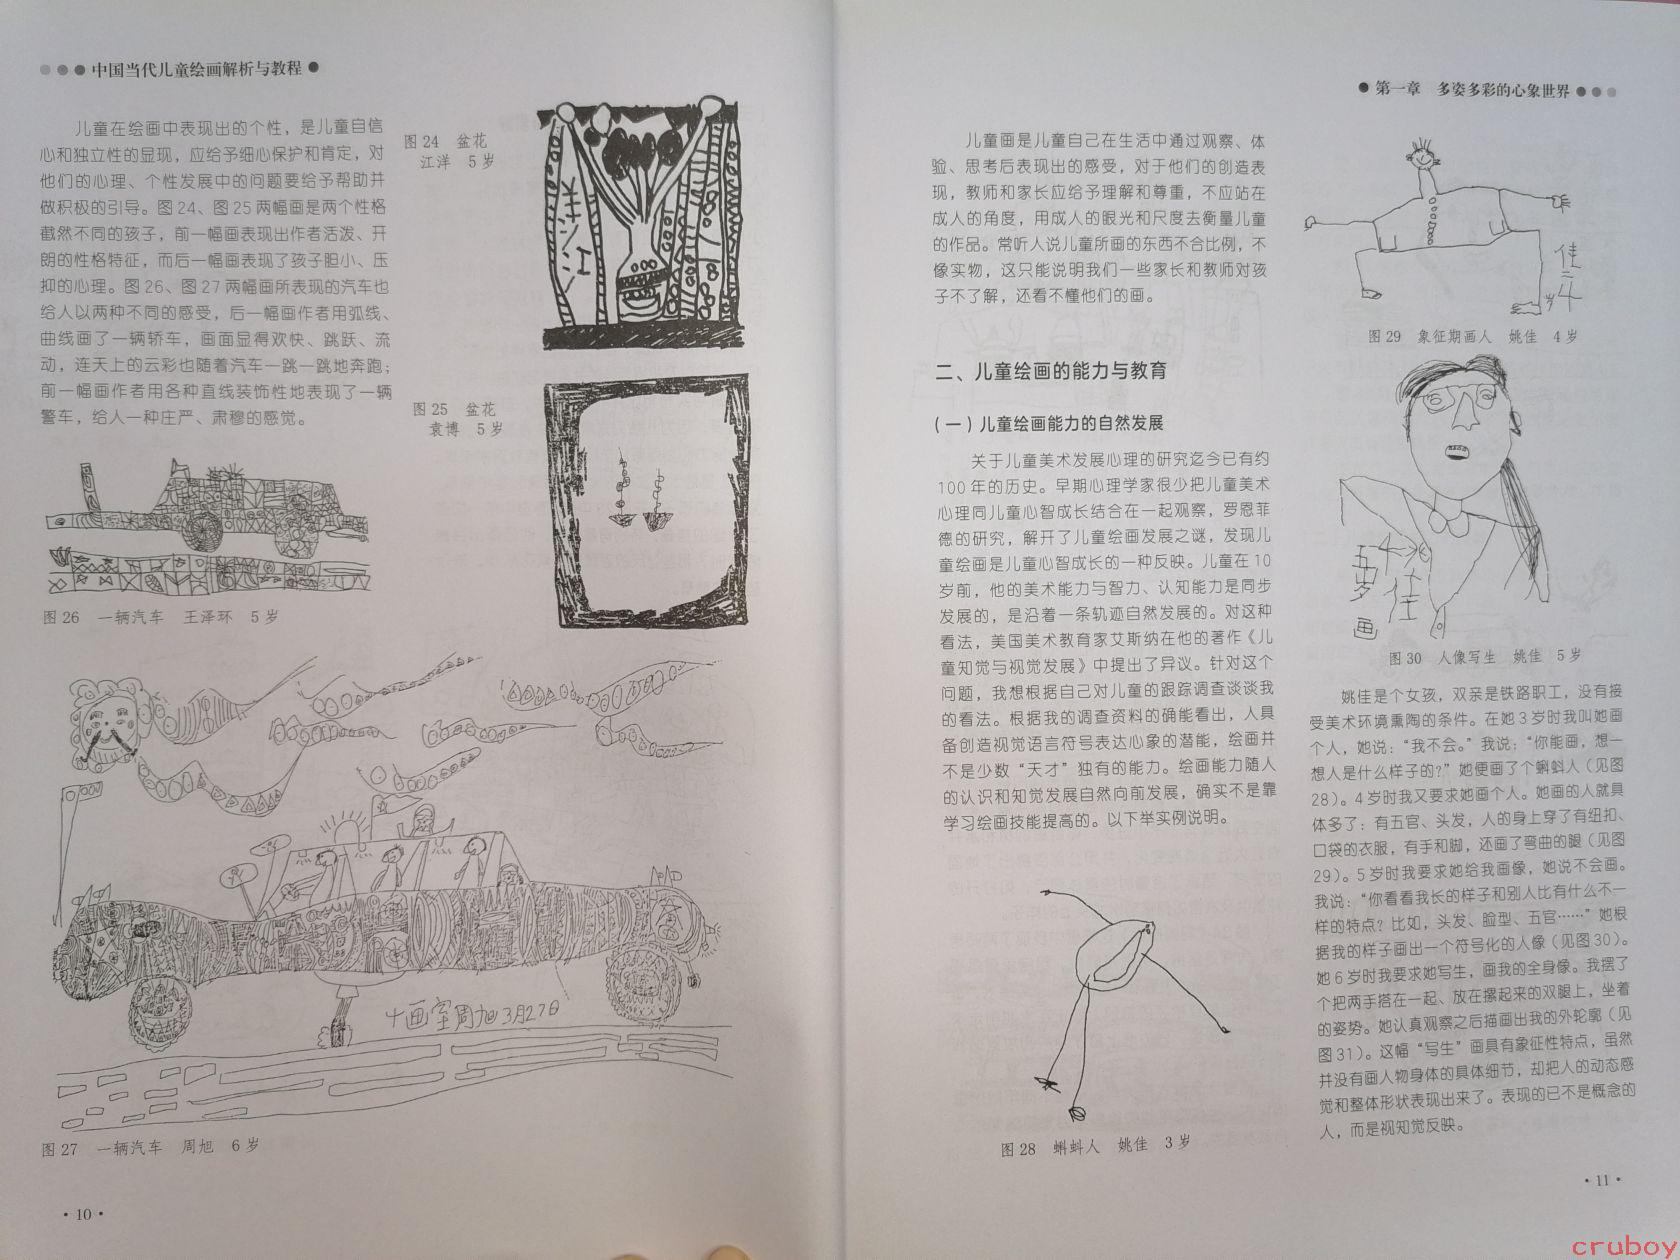 中国当代儿童绘画解析与教程
儿童在绘画中表现出的个性，是儿童自信
心和独立性的显现，应给予细心保护和肯定，对
他们的心理、个性发展中的问题要给予帮助并
做积极的引导。图24、图25两幅画是两个性格
截然不同的孩子，前一幅画表现出作者活泼、开
朗的性格特征，而后一幅画表现了孩子胆小、压
抑的心理。图26、图27两幅画所表现的汽车也
给人以两种不同的感受，后一幅画作者用弧线、
曲线画了一辆轿车，画面显得欢快、跳跃、流
动，连天上的云彩也随着汽车一跳一跳地奔跑；
前一幅画作者用各种直线装饰性地表现了一辆
警车，给人一种庄严、肃穆的感觉。
图24 盆花
江洋 5岁
江洋
图25 盆花
袁博 5岁
图26 一辆汽车 王泽环 5岁
十画室周旭3月27日
图27 一辆汽车 周旭 6岁
·10·
第一章 多姿多彩的心象世界
儿童画是儿童自己在生活中通过观察、体
验、思考后表现出的感受，对于他们的创造表
现，教师和家长应给予理解和尊重，不应站在
成人的角度，用成人的眼光和尺度去衡量儿童
的作品。常听人说儿童所画的东西不合比例，不
像实物，这只能说明我们一些家长和教师对孩
子不了解，还看不懂他们的画。
二、儿童绘画的能力与教育
（一）儿童绘画能力的自然发展
关于儿童美术发展心理的研究迄今已有约
100年的历史。早期心理学家很少把儿童美术
心理同儿童心智成长结合在一起观察，罗恩菲
德的研究，解开了儿童绘画发展之谜，发现儿
童绘画是儿童心智成长的一种反映。儿童在10
岁前，他的美术能力与智力、认知能力是同步
发展的，是沿着一条轨迹自然发展的。对这种
看法，美国美术教育家艾斯纳在他的著作《儿
童知觉与视觉发展》中提出了异议。针对这个
问题，我想根据自己对儿童的跟踪调查谈谈我
的看法。根据我的调查资料的确能看出，人具
备创造视觉语言符号表达心象的潜能，绘画并
不是少数“天才”独有的能力。绘画能力随人
的认识和知觉发展自然向前发展，确实不是靠
学习绘画技能提高的。以下举实例说明。
图28 蝌蚪人 姚佳 3岁
佳
岁
图29 象征期画人 姚佳 4岁
五岁
佳
画
图30 人像写生 姚佳 5岁
姚佳是个女孩，双亲是铁路职工，没有接
受美术环境熏陶的条件。在她3岁时我叫她画
个人，她说：“我不会。”我说：“你能画，想一
想人是什么样子的？”她便画了个蝌蚪人（见图
28）。4岁时我又要求她画个人。她画的人就具
体多了：有五官、头发，人的身上穿了有纽扣、
口袋的衣服，有手和脚，还画了弯曲的腿（见图
29）。5岁时我要求她给我画像，她说不会画。
我说：“你看看我长的样子和别人比有什么不一
样的特点？比如，头发、脸型、五官……”她根
据我的样子画出一个符号化的人像（见图30）。
她6岁时我要求她写生，画我的全身像。我摆了
个把两手搭在一起、放在摞起来的双腿上，坐着
的姿势。她认真观察之后描画出我的外轮廓（见
图31）。这幅“写生”画具有象征性特点，虽然
并没有画人物身体的具体细节，却把人的动态感
觉和整体形状表现出来了。表现的已不是概念的
人，而是视知觉反映。
·11·
cruboy